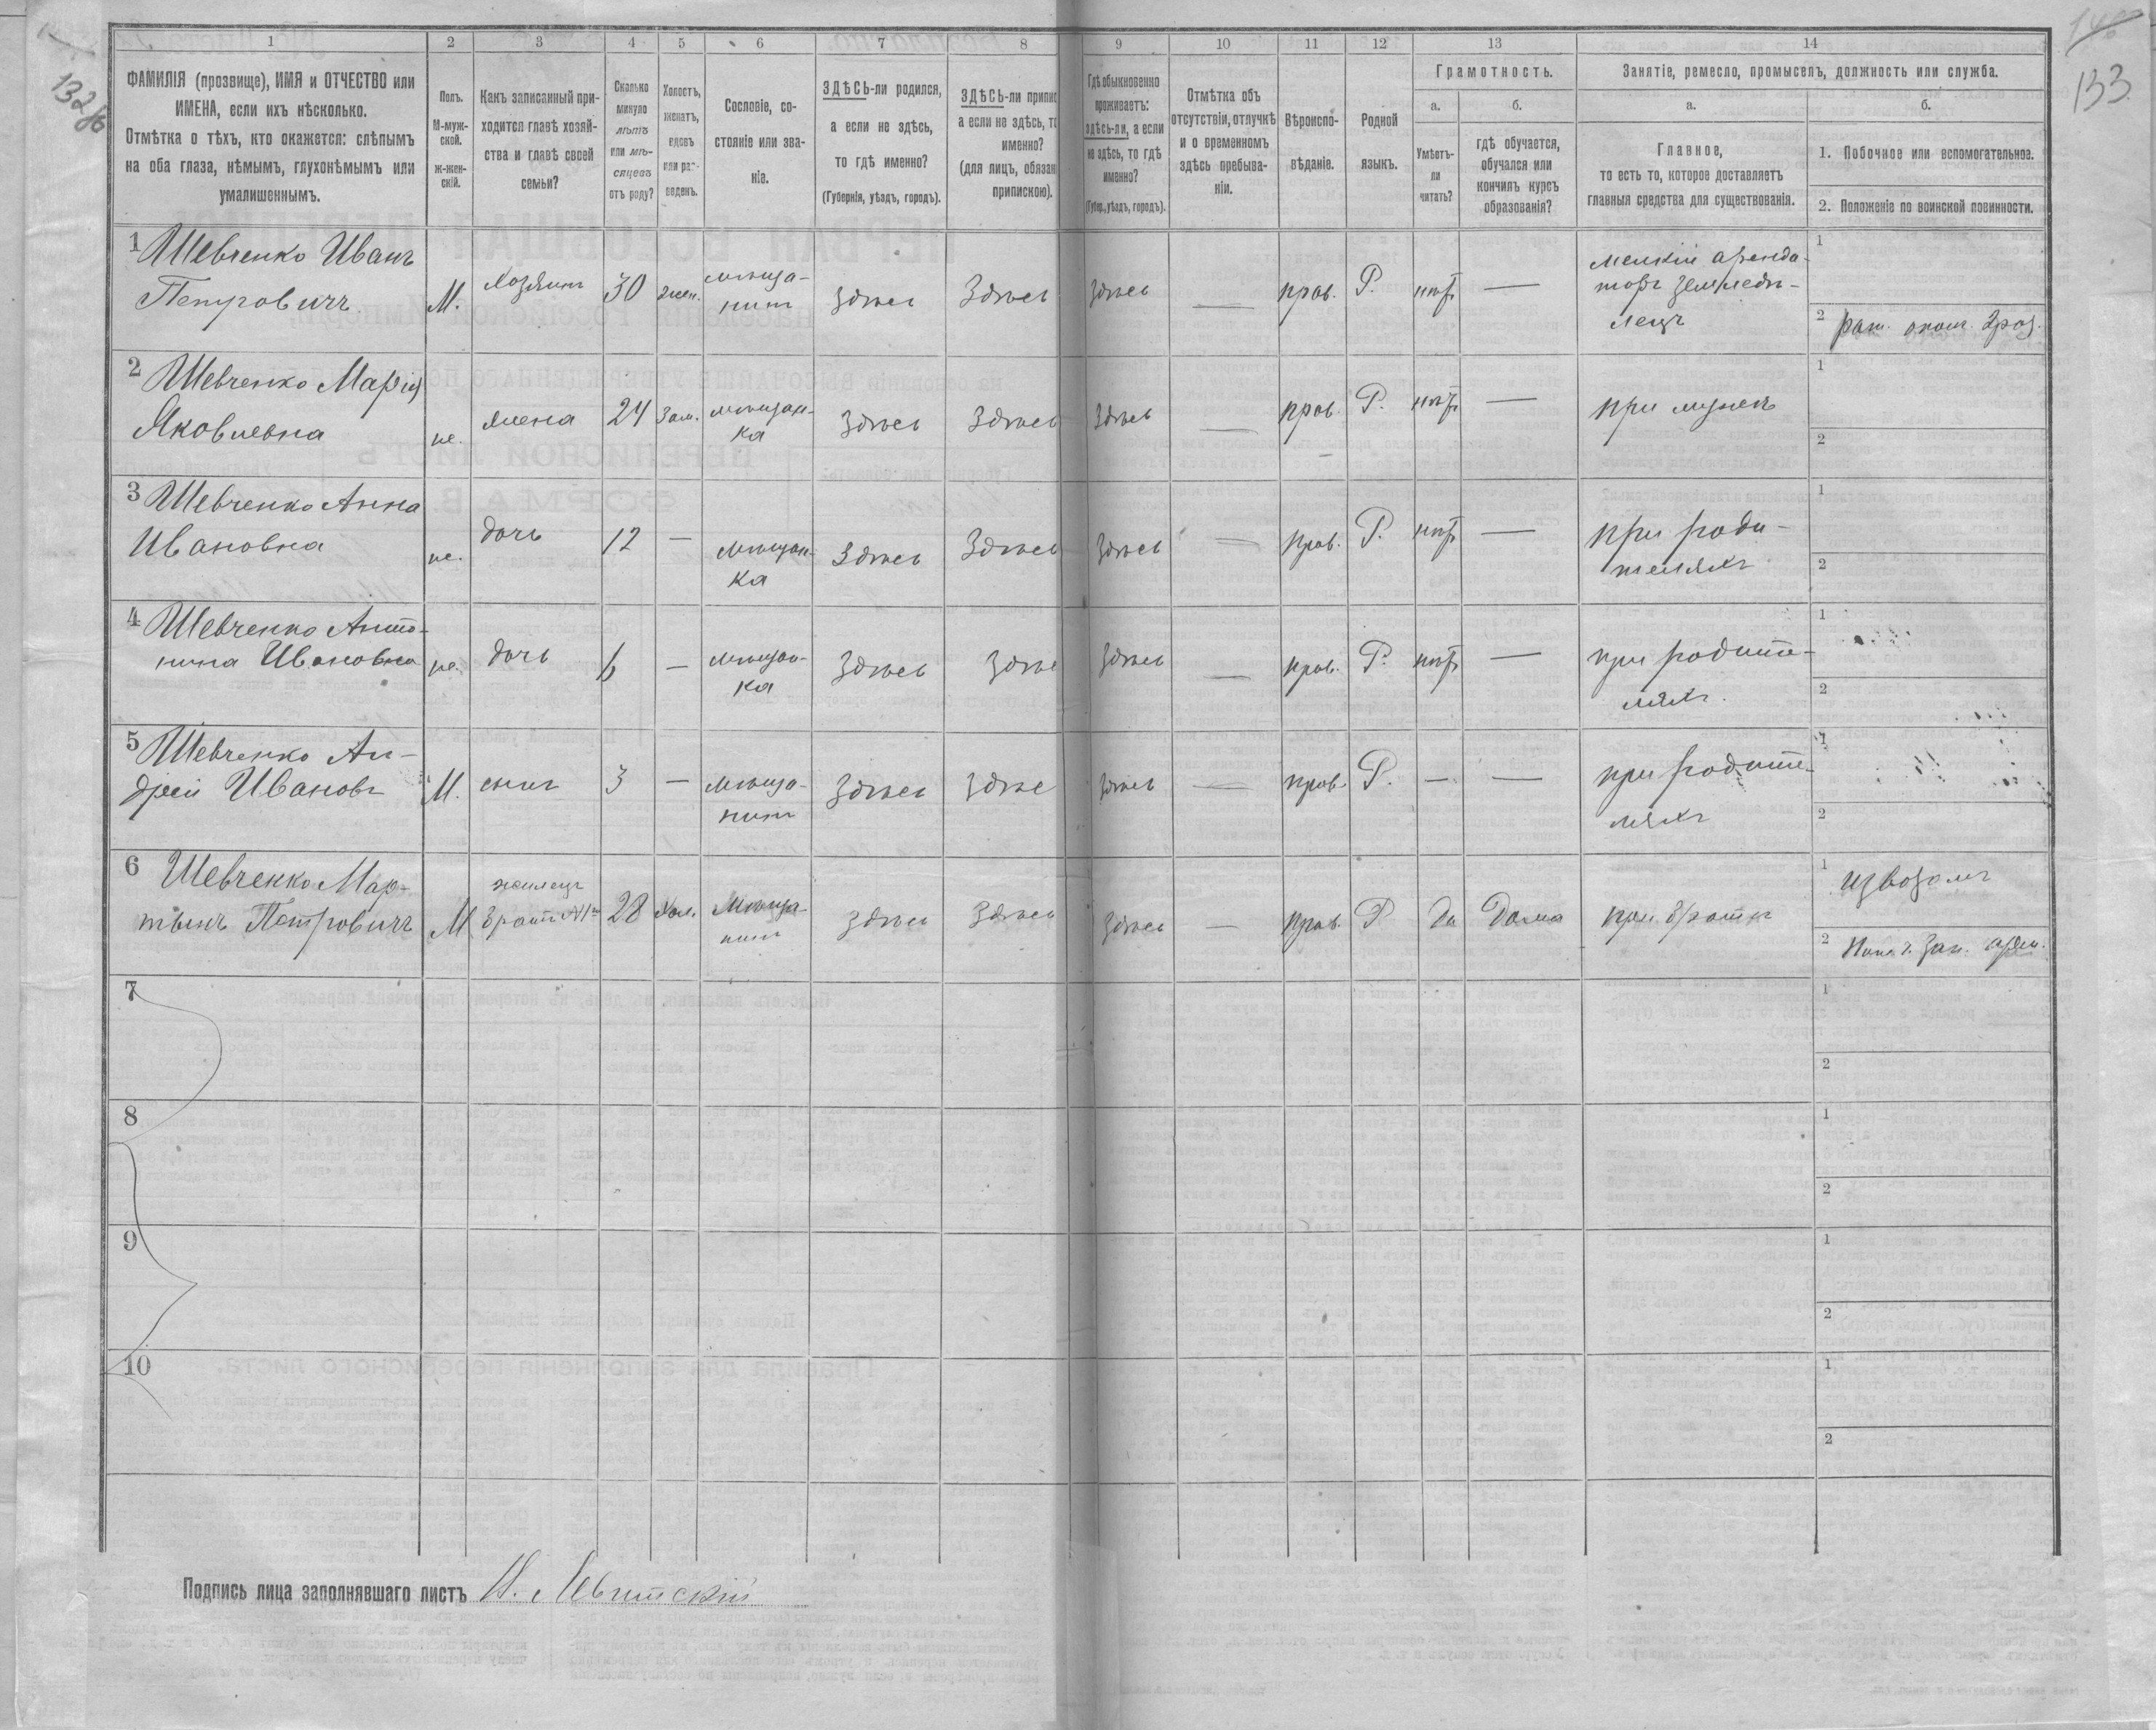 132 об
133
1 2 3 4 5 6 7 8 9 10 11 12 13 14
ФАМИЛІЯ (прозвище), ИМЯ и ОТЧЕСТВО или
ИМЕНА, если ихъ нѣсколько.
Отмѣтка о тѣхъ, кто окажется: слѣпымъ
на оба глаза, нѣмымъ, глухонѣмымъ или
умалишеннымъ.
Полъ.
М-муж-
ской.
ж-жен-
скій.
Какъ записанный при-
ходится главѣ хозяй-
ства и главѣ своей
семьи?
Сколько
минуло
лѣтъ
или мѣ-
сяцевъ
отъ роду?
Холостъ,
женатъ,
вдовъ
или раз-
веденъ.
Сословіе, со-
стояніе или зва-
ніе.
ЗДѢСЬ-ли родился,
а если не здѣсь,
то гдѣ именно?
(Губернія, уѣздъ, городъ).
ЗДѢСЬ-ли припис
а если не здѣсь, то
именно?
(для лицъ, обязан
припискою).
Гдѣ обыкновенно
проживаетъ:
здѣсь-ли, а если
не здѣсь, то гдѣ
именно?
(Губер., уѣздъ, городъ).
Отмѣтка объ
отсутствіи, отлучкѣ
и о временномъ
здѣсь пребыва-
ніи.
Вѣроиспо-
вѣданіе.
Родной
языкъ.
Грамотность.
а.
Умѣетъ-
ли
читать?
б.
гдѣ обучается,
обучался или
кончилъ курсъ
образованія?
Занятіе, ремесло, промыселъ, должность или служба.
а.
Главное,
то есть то, которое доставляетъ
главныя средства для существованія.
б.
1. Побочное или вспомогательное.
2. Положеніе по воинской повинности.
1 Шевченко Иванъ
Петровичъ
М.
Хозяинъ
30
жен.
мѣща-
нинъ
здѣсь
Здѣсь
здѣсь
—
прав.
Р.
нѣт
—
мелкій аренда-
торъ земледѣ-
лецъ
1
2
2 Шевченко Марія
Яковлевна
ж.
жена
24
Зам.
мѣщан-
ка
здѣсь
здѣсь
здѣсь
—
прав.
Р.
нѣт
—
при мужѣ
1
2
3 Шевченко Анна
Ивановна
ж.
дочь
12
—
мѣщан-
ка
здѣсь
здѣсь
здѣсь
—
прав.
Р.
нѣт
—
при роди-
теляхъ
1
2
4 Шевченко Анто-
нина Ивановна
ж.
дочь
6
—
мѣщан-
ка
здѣсь
здѣс
здѣсь
—
прав.
Р.
нѣт
—
при родите-
ляхъ.
1
2
5 Шевченко Ан-
дрей Ивановъ
М.
сынъ
3
—
мѣща-
нинъ
здѣсь
здѣс
здѣсь
—
прав.
Р.
—
—
при родите-
ляхъ
1
2
6 Шевченко Мар-
тынъ Петровичъ
М
жилецъ
братъ №1го
28
Хол.
Мѣща-
нинъ
здѣсь
здѣсь
здѣсь
—
прав.
Р
Да
Дома
при братѣ
1 извозомъ
2
7 1
2
8 1
2
9 1
2
10 1
2
Подпись лица заполнявшаго листъ Левитскій